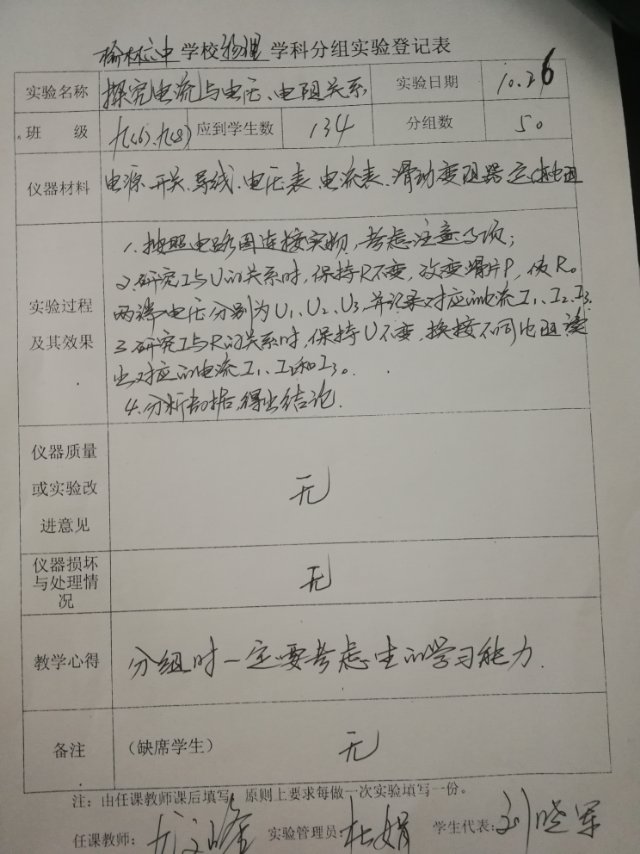 榆林六中学校物理学科分组实验登记表
实验名称 探究电流与电压、电阻关系 实验日期 10.26
班 级 九(6)、九(8) 应到学生数 134 分组数 50
仪器材料 电源、开关、导线、电压表、电流表、滑动变阻器 定值电阻
实验过程及其效果
1. 按照电路图连接实物,考虑注意事项;
2. 研究I与U的关系时,保持R不变,改变滑片P,使R。
两端电压分别为U₁、U₂、U₃,并记录对应的电流I₁、I₂、I₃.
3. 研究I与R的关系时,保持U不变,换接不同电阻 读
出对应的电流I₁、I₂和I₃。
4. 分析数据,得出结论.
仪器质量
或实验改
进意见
无
仪器损坏
与处理情
况
无
教学心得 分组时一定要考虑生的学习能力.
备注 (缺席学生) 无
注:由任课教师课后填写,原则上要求每做一次实验填写一份。
任课教师: 实验管理员:杜娟 学生代表:刘晓军